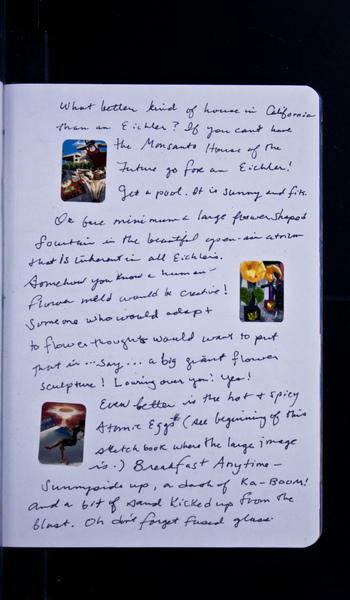 What better kind of house in California
than an Eichler? If you can't have
the Monsanto House of the
Future go for an Eichler!
Get a pool. It is sunny and fits.
Or bare minimum a large flower shaped
fountain in the beautiful open-air atrium
that is inherent in all Eichlers.
Somehow you know a human-
flower meld would be creative!
Someone who would adapt
to flower thoughts would want to put
that in... say... a big giant flower
sculpture! Lowing over you! Yes!
Even better is the hot & spicy
Atomic Eggs* (see beginning of this
sketchbook where the large image
is.) Breakfast Anytime -
Sunnyside up, a dash of Ka-BOOM!
and a bit of sand kicked up from the
blast. Oh don't forget fused glass.